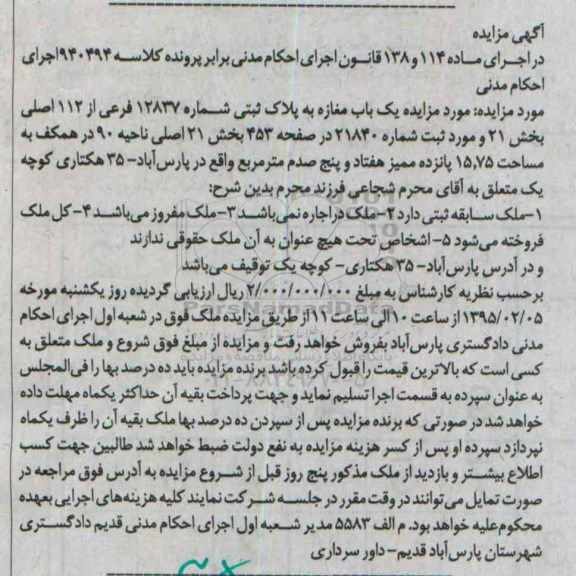 آگهی مزایده
در اجرای ماده ۱۱۴ و ۱۳۸ قانون اجرای احکام مدنی برابر پرونده کلاسه ۹۴۰۴۹۴ اجرای
احکام مدنی
مورد مزایده: مورد مزایده یک باب مغازه به پلاک ثبتی شماره ۱۲۸۳۷ فرعی از ۱۱۲ اصلی
بخش ۲۱ و مورد ثبت شماره ۲۱۸۴۰ در صفحه ۴۵۳ بخش ۲۱ اصلی ناحیه ۹۰ در همکف به
مساحت ۱۵٫۷۵ پانزده ممیز هفتاد و پنج صدم مترمربع واقع در پارس‌آباد- ۳۵ هکتاری کوچه
یک متعلق به آقای محرم شجاعی فرزند محرم بدین شرح:
۱-ملک سابقه ثبتی دارد ۲-ملک در اجاره نمی‌باشد ۳-ملک مفروز می‌باشد ۴-کل ملک
فروخته می‌شود ۵-اشخاص تحت هیچ عنوان به آن ملک حقوقی ندارند
و در آدرس پارس‌آباد- ۳۵ هکتاری- کوچه یک توقیف می‌باشد
برحسب نظریه کارشناس به مبلغ ۲/۰۰۰/۰۰۰/۰۰۰ ریال ارزیابی گردیده روز یکشنبه مورخه
۱۳۹۵/۰۲/۰۵ از ساعت ۱۰ الی ساعت ۱۱ از طریق مزایده ملک فوق در شعبه اول اجرای احکام
مدنی دادگستری پارس‌آباد بفروش خواهد رفت و مزایده از مبلغ فوق شروع و ملک متعلق به
کسی است که بالاترین قیمت را قبول کرده باشد برنده مزایده باید ده درصد بها را فی‌المجلس
به عنوان سپرده به قسمت اجرا تسلیم نماید و جهت پرداخت بقیه آن حداکثر یکماه مهلت داده
خواهد شد در صورتی که برنده مزایده پس از سپردن ده درصد بها ملک بقیه آن را ظرف یکماه
نپردازد سپرده او پس از کسر هزینه مزایده به نفع دولت ضبط خواهد شد طالبین جهت کسب
اطلاع بیشتر و بازدید از ملک مذکور پنج روز قبل از شروع مزایده به آدرس فوق مراجعه در
صورت تمایل می‌توانند در وقت مقرر در جلسه شرکت نمایند کلیه هزینه‌های اجرایی بعهده
محکوم‌علیه خواهد بود. م الف ۵۵۸۳ مدیر شعبه اول اجرای احکام مدنی قدیم دادگستری
شهرستان پارس‌آباد قدیم- داور سرداری